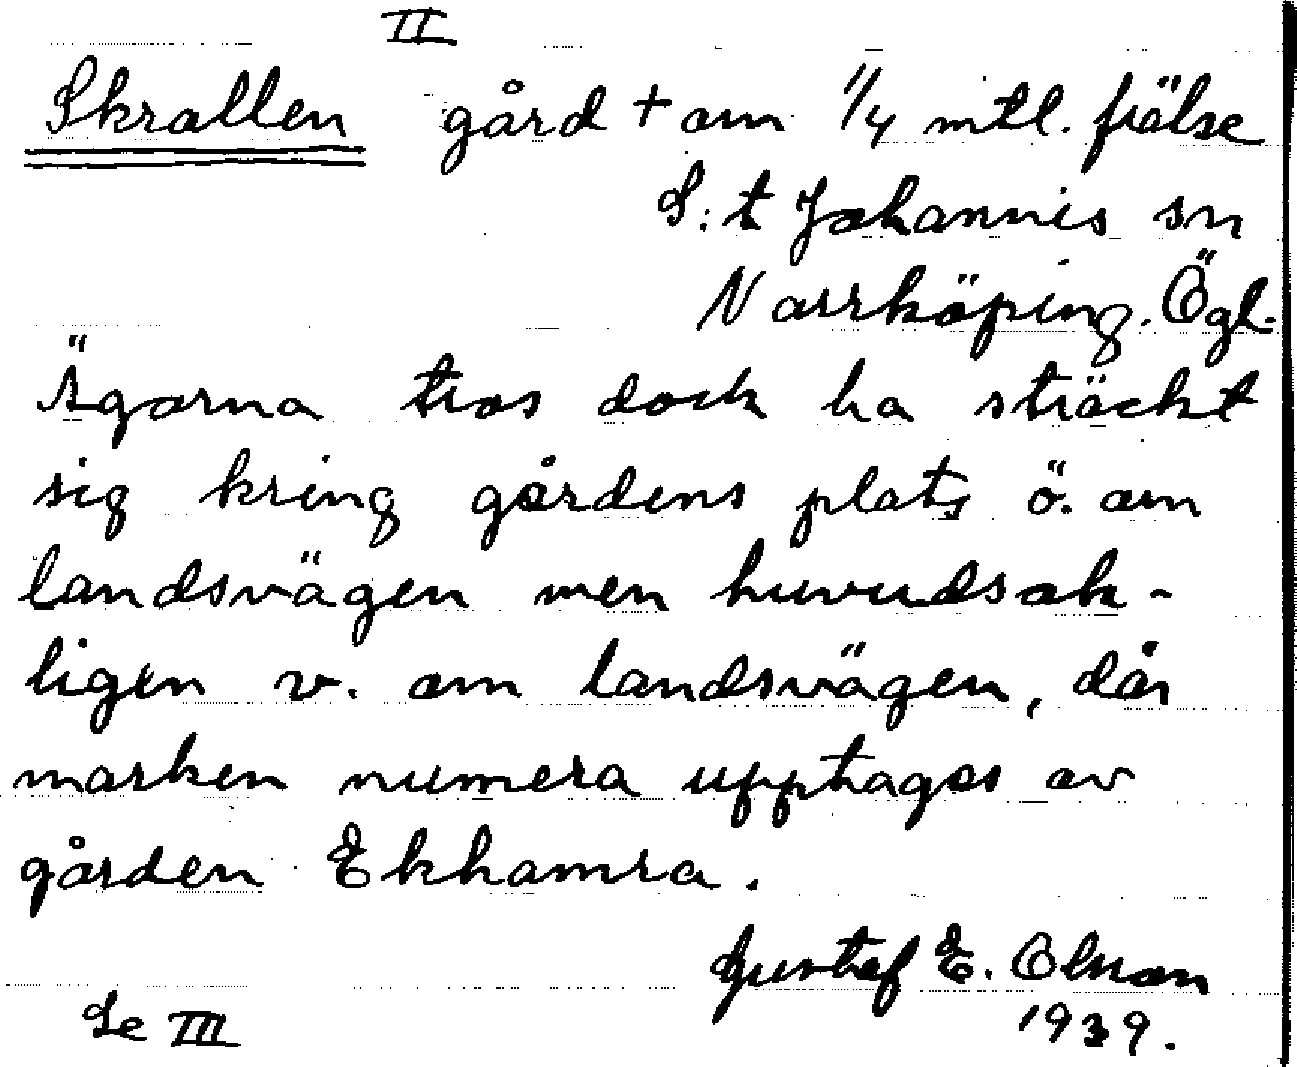 II
Skrallen gård + om 1/4 mtl. frälse
S:t Johannis sn
Norrköping. Ögl.
Ägorna tros dock ha sträckt
sig kring gårdens plats ö. om
landsvägen men huvudsak-
ligen v. om landsvägen, där
marken numera upptages av
gården Ekhamra.
Gustaf E. Olson
Se III 1939.